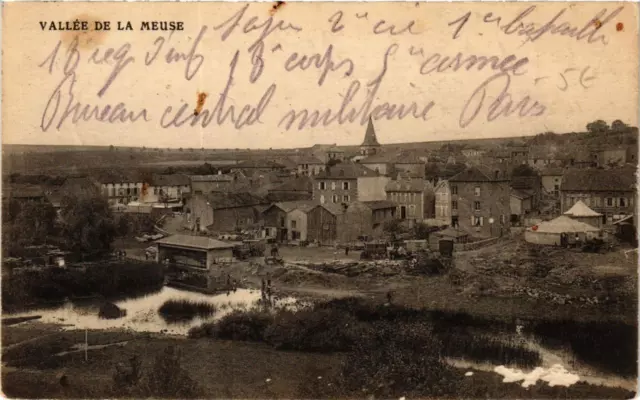 VALLÉE DE LA MEUSE
la 2e Cie 1er bataill
16 reg Inf 18e corps 5e armée
5€
Bureau central militaire Paris